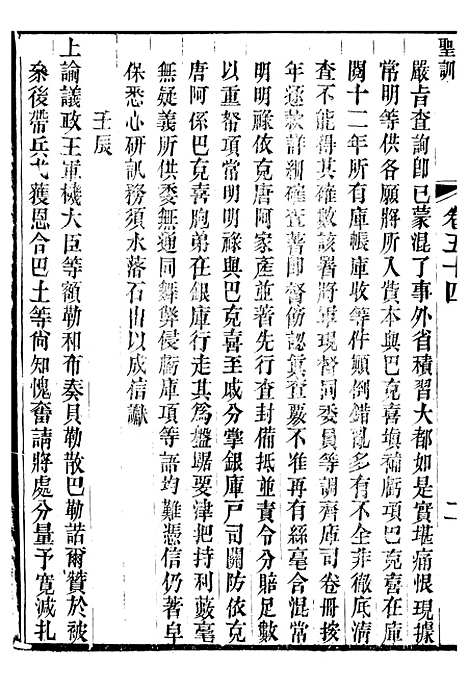 聖訓
卷五十四
二
嚴旨查詢卽已蒙混了事外省積習大都如是實堪痛恨現據
常明等供各願將所入貲本與巴克喜塡補虧項巴克喜在庫
閱十二年所有庫帳庫收等件顚倒錯亂多有不全非徹底清
查不能得其確數該署將軍現督同委員等調齊庫司卷冊挨
年逐款詳細確查著卽督飭認眞查覈不得稍有絲毫含混常
明明祿依克唐阿家產並著先行查封備抵並責令分賠足數
以重帑項常明明祿與巴克喜至戚分掌銀庫戸司關防依克
唐阿係巴克喜胞弟在銀庫行走其爲盤踞要津把持利藪毫
無疑義所供委無通同舞弊侵虧庫項等語均難憑信仍著阜
保悉心研訊務須水落石出以成信讞
壬辰
上諭議政王軍機大臣等額勒和布奏貝勒散巴勒諾爾贊於被
參後帶兵弋獲恩合巴土等尙知愧奮請將處分量予寬減扎